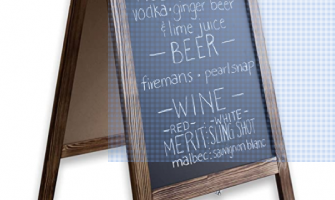 vodka • ginger beer
& lime juice
— BEER —
firemans • pearl snap
— WINE —
-RED- -WHITE-
MERIT • SLING SHOT
malbec : sauvignon blanc